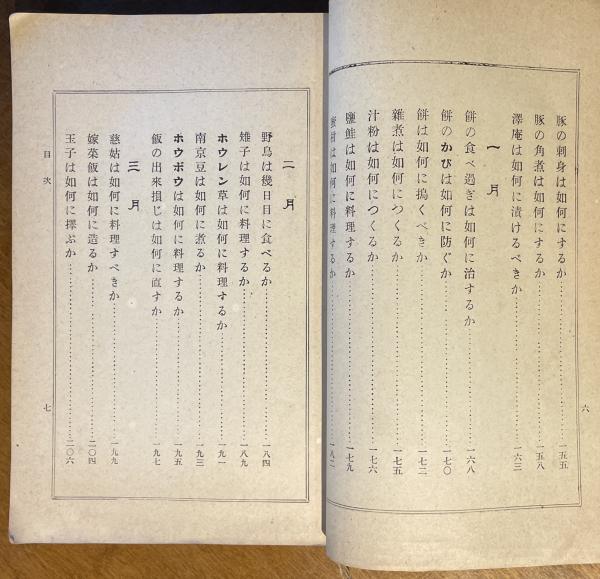 豚の刺身は如何にするか……一五五
豚の角煮は如何にするか……一五八
澤庵は如何に漬けるべきか……一六三
一月
餅の食べ過ぎは如何に治するか……一六八
餅のかびは如何に防ぐか……一七〇
餅は如何に搗くべきか……一七二
雜煮は如何につくるか……一七五
汁粉は如何につくるか……一七六
鹽鮭は如何に料理するか……一七九
は如何に料理するか……一八二
六
二月
野鳥は幾日目に食べるか……一八四
雉子は如何に料理するか……一八九
ホウレン草は如何に料理するか……一九一
南京豆は如何に煮るか……一九三
ホウボウは如何に料理するか……一九五
飯の出來損じは如何に直すか……一九七
三月
慈姑は如何に料理すべきか……一九九
嫁菜飯は如何に造るか……二〇四
玉子は如何に擇ぶか……二〇六
目次
七